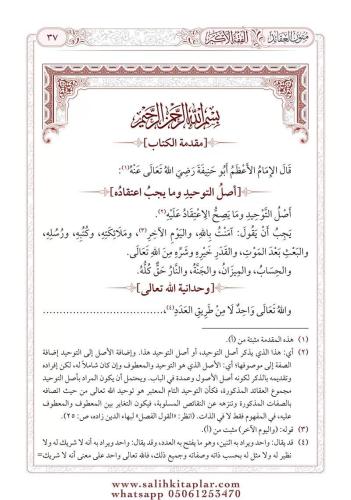 متون العقائد
الفقه الأكبر
٣٧
بسم الله الرحمن الرحيم
[مقدمة الكتاب]
قَالَ الإِمَامُ الأَعْظَمُ أَبُو حَنِيفَةَ رَضِيَ اللهُ تَعَالَى عَنْهُ(١):
[أصلُ التوحيد وما يجبُ اعتقادُه]
أَصْلُ التَّوْحِيدِ وَمَا يَصِحُّ الِاعْتِقَادُ عَلَيْهِ(٢).
يَجِبُ أَنْ يَقُولَ: آمَنْتُ بِاللهِ، وَالْيَوْمِ الآخِرِ(٣)، وَمَلَائِكَتِهِ، وَكُتُبِهِ، وَرُسُلِهِ،
وَالبَعْثِ بَعْدَ المَوْتِ، وَالقَدَرِ خَيْرِهِ وَشَرِّهِ مِنَ اللهِ تَعَالَى.
وَالحِسَابُ، وَالمِيزَانُ، وَالجَنَّةُ، وَالنَّارُ حَقٌّ كُلُّهُ.
[وحدانية الله تعالى]
وَاللهُ تَعَالَى وَاحِدٌ لَا مِنْ طَرِيقِ العَدَدِ(٤)،..............................
(١) هذه المقدمة مثبتة من (أ).
(٢) أي: هذا الذي يذكر أصل التوحيد، أو أصل التوحيد هذا. وإضافة الأصل إلى التوحيد إضافة
الصفة إلى موصوفها؛ أي: الأصل الذي هو التوحيد والمعطوف وإن كان شاملاً له، لكن إفراده
وتقديمه بالذكر لكونه أصل الأصول وعمدة في الباب. ويحتمل أن يكون المراد بأصل التوحيد
مجموع العقائد المذكورة، فكأن التوحيد التام المعتبر هو توحيد الله تعالى من حيث اتصافه
بالصفات المذكورة وتنزهه عن النقائص المسلوبة، فيكون التغاير بين المعطوف والمعطوف
عليه، في المفهوم فقط لا في الذات. (انظر: «القول الفصل» لبهاء الدين زاده، ص: ٢٥).
(٣) قوله: (واليوم الآخر) مثبت من (أ).
(٤) قد يقال: واحد ويراد به اثنين، وهو ما يفتح به العدد، وقد يقال: واحد ويراد به أنه لا شريك له ولا
نظير له ولا مثل له بحسب ذاته وصفاته وجميع ذلك، فالله تعالى واحد على معنى أنه لا شريك=
www.salihkitaplar.com
whatsapp 05061253470